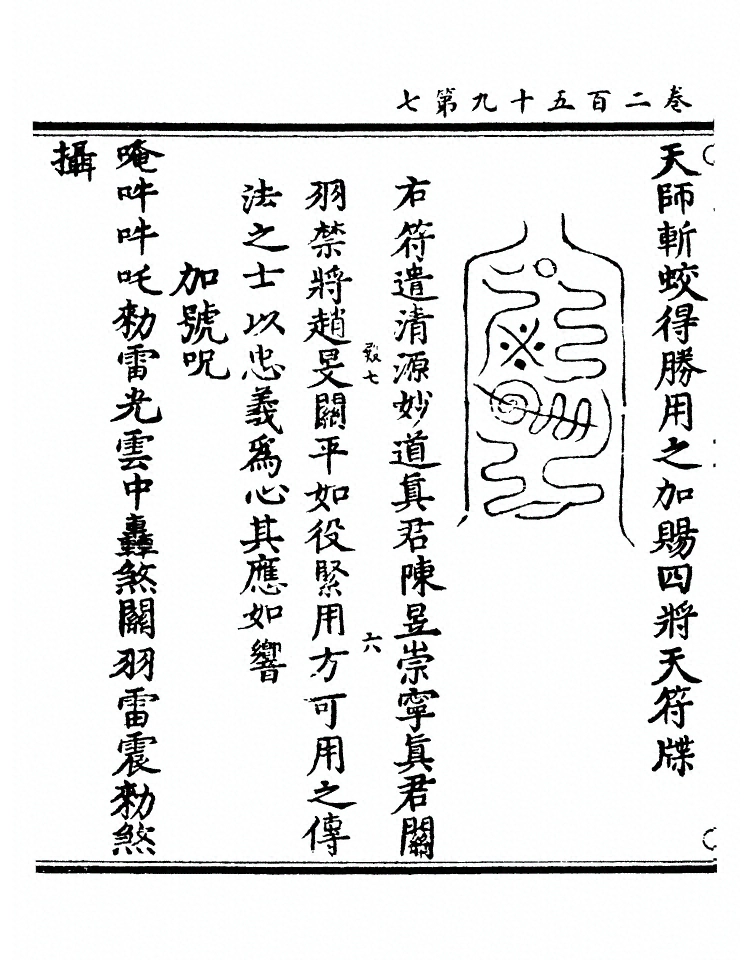 卷二百五十九第七
天師斬蛟得勝用之加賜四將天符牒
右符遣清源妙道眞君陳昱崇寧眞君關
七 六
羽禁將趙旻關平如役緊用方可用之傳
法之士以忠義爲心其應如響
加號呪
唵吽吽吒勑雷光雲中轟煞關羽雷震勑煞
攝